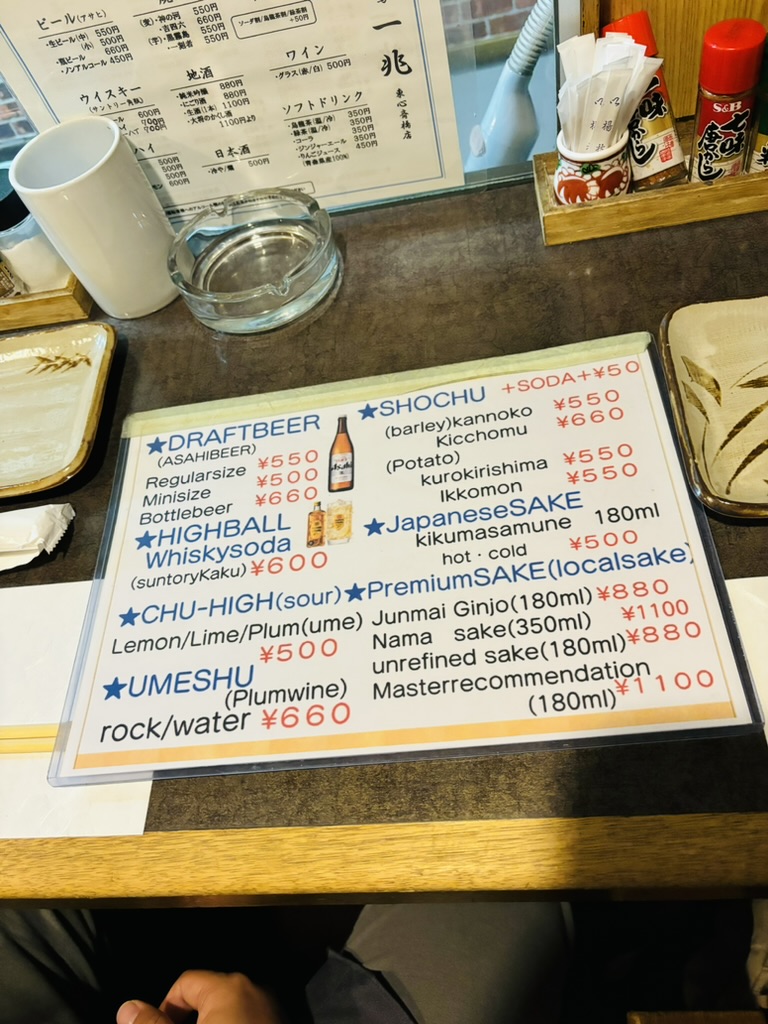 ビール(アサヒ)
・生ビール(中) 550円
(小) 500円
・瓶ビール 660円
・ノンアルコール 450円
(麦)・神の河 550円
・吉四六 660円
(芋)・黒霧島 550円
・一刻者 550円
ソーダ割/烏龍茶割/緑茶割
+50円
ウイスキー
(サントリー角瓶)
600円
700円
700円
地酒
・純米吟醸 880円
・にごり酒 880円
・生酒(1本) 1100円
・大将のかくし酒 1100円より
ワイン
・グラス(赤/白) 500円
ハイ
500円
500円
600円
日本酒
・冷や/燗 500円
ソフトドリンク
・烏龍茶(温/冷) 350円
・緑茶(温/冷) 350円
・コーラ 350円
・ジンジャーエール 350円
・りんごジュース 450円
(青森県産100%)
一兆
東心斎橋店
S&B
七味
唐からし
福
★DRAFTBEER
(ASAHIBEER)
Regularsize ¥550
Minisize ¥500
Bottlebeer ¥660
★HIGHBALL
Whiskysoda
(suntoryKaku) ¥600
★CHU-HIGH(sour)
Lemon/Lime/Plum(ume)
¥500
★UMESHU
(Plumwine)
rock/water ¥660
★SHOCHU +SODA+¥50
(barley)kannoko ¥550
Kicchomu ¥660
(Potato)
kurokirishima ¥550
Ikkomon ¥550
★JapaneseSAKE
kikumasamune 180ml
hot・cold ¥500
★PremiumSAKE(localsake)
Junmai Ginjo(180ml) ¥880
Nama sake(350ml) ¥1100
unrefined sake(180ml) ¥880
Masterrecommendation
(180ml) ¥1100